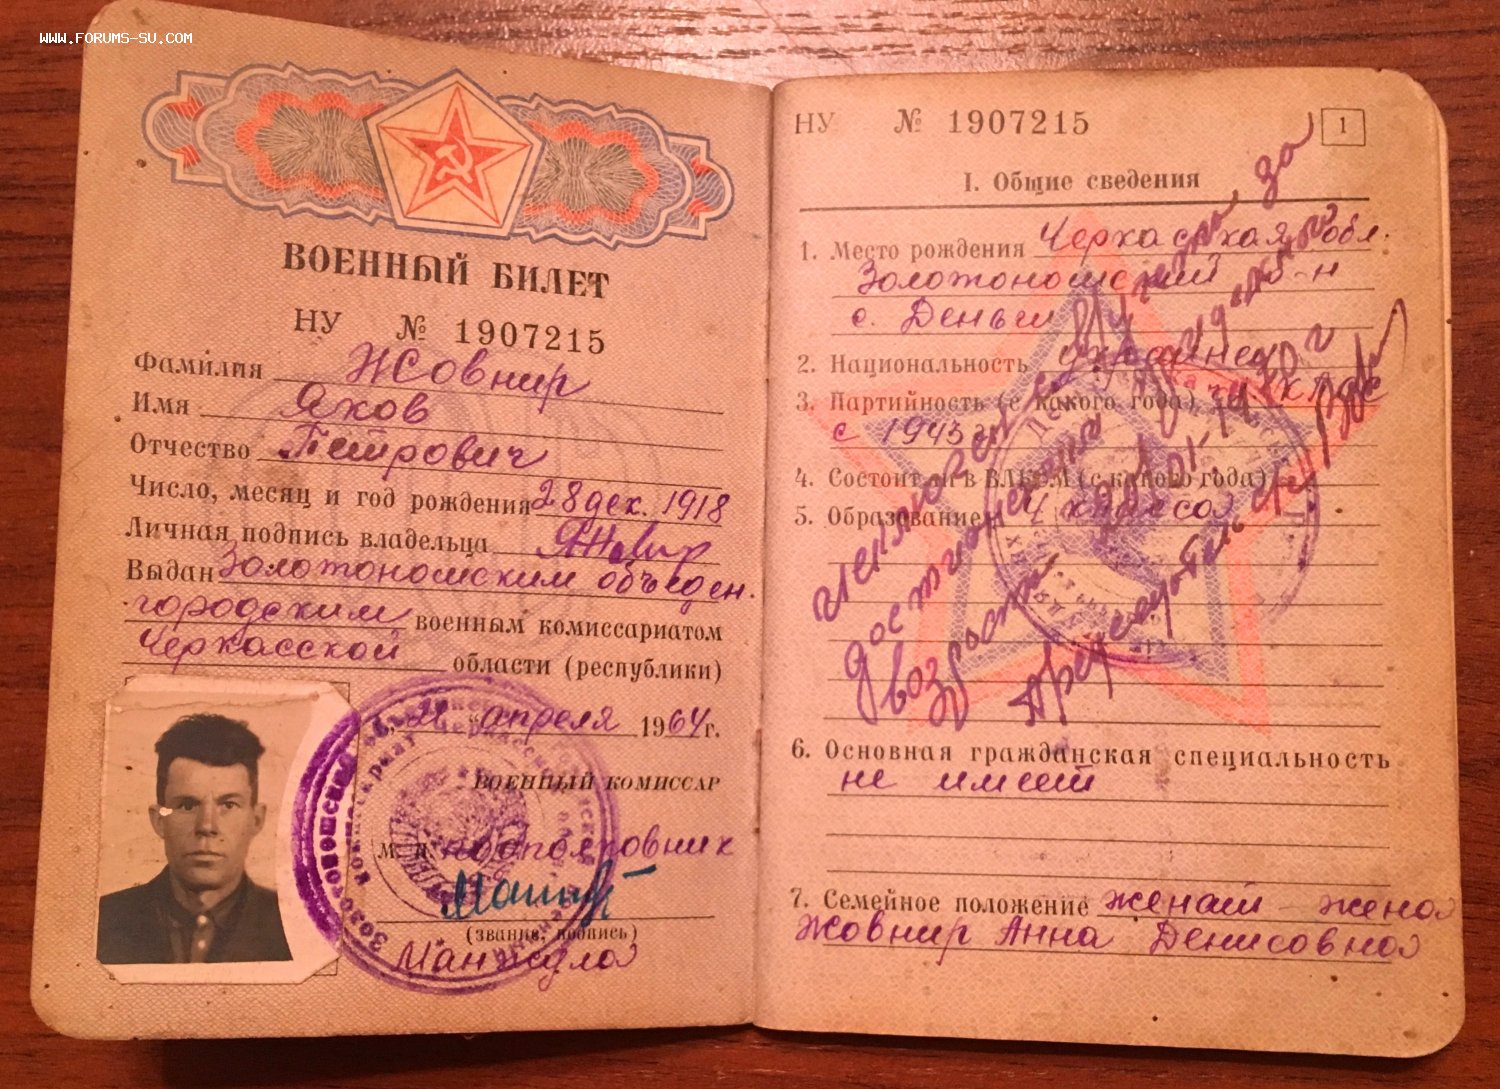 WWW.FORUMS-SU.COM
ВОЕННЫЙ БИЛЕТ
НУ № 1907215
Фамилия Жовнир
Имя Яков
Отчество Петрович
Число, месяц и год рождения 28 дек. 1918
Личная подпись владельца
Выдан Золотоношским объеден.
городским военным комиссариатом
Черкасской области (республики)
апреля 1964 г.
ВОЕННЫЙ КОМИССАР
М. П. подполковник
(звание, подпись)
Манжула
НУ № 1907215
1
I. Общие сведения
1. Место рождения Черкасская обл.
Золотоношский р-н
с. Деньги
2. Национальность украинец
3. Партийность (с какого года)
с 1943
4. Состоит ли в ВЛКСМ (с какого года)
5. Образование 4 класса
исключен с учета за
достижением
возраста
6. Основная гражданская специальность
не имеет
7. Семейное положение женат – жена
Жовнир Анна Денисовна